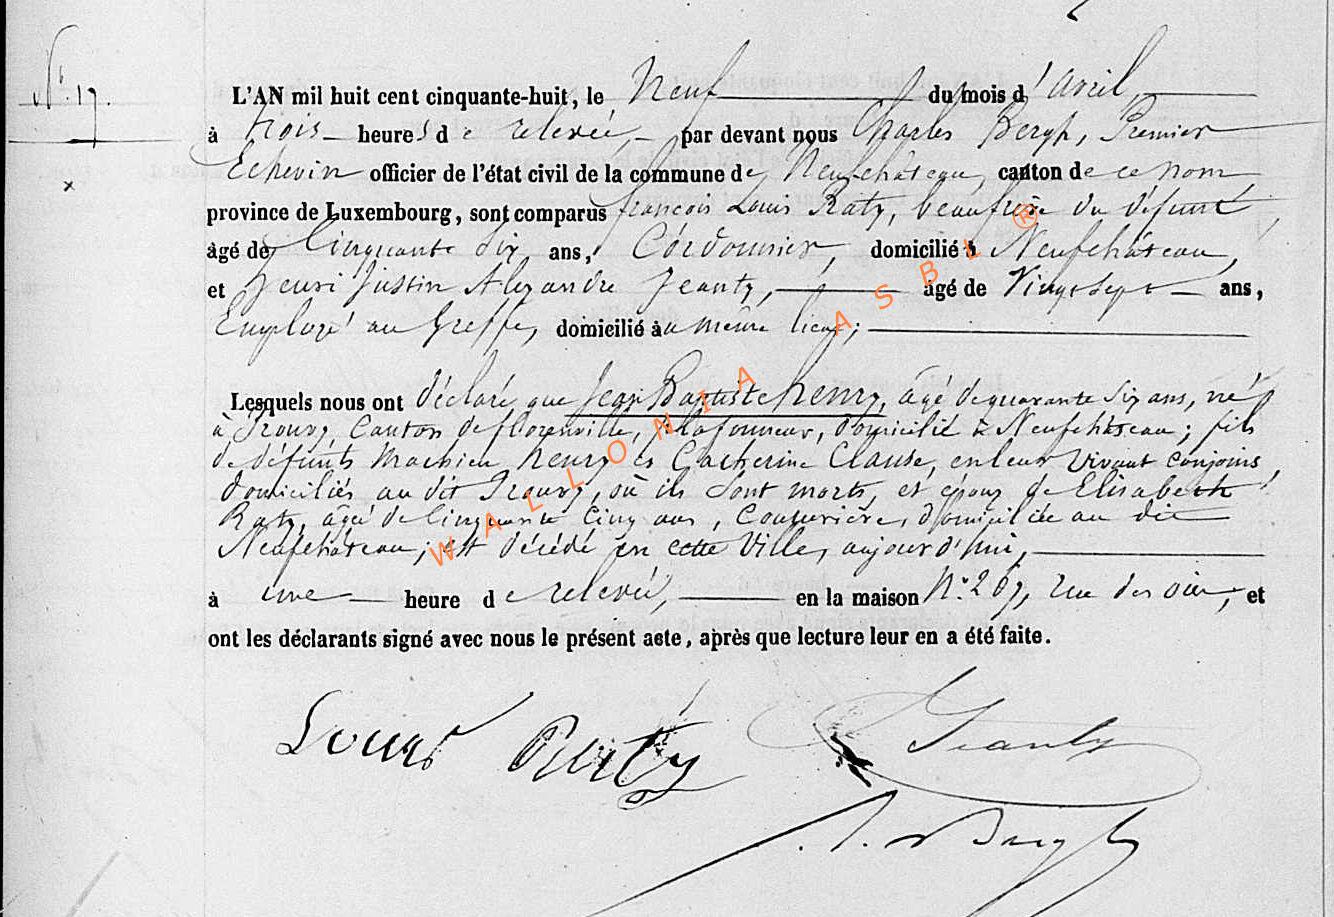 N° 17.
L'AN mil huit cent cinquante-huit, le Neuf du mois d'avril,
à trois heures de relevée, par devant nous Charles Bergh, Premier
Echevin officier de l'état civil de la commune de Neufchâteau, canton de ce nom
province de Luxembourg, sont comparus françois Louis Raty, beaufrère du défunt
âgé de Cinquante Six ans, Cordonnier, domicilié à Neufchâteau,
et Henri Justin Alexandre Jeanty, âgé de Vingt Sept ans,
Employé au Greffe, domicilié au même lieu;
Lesquels nous ont déclaré que Jean Baptiste henry, âgé de quarante Six ans, né
à Izouvy, Canton de florenville, plafonneur, domicilié à Neufchâteau; fils
de défunts Mathieu henry et Catherine Clause, en leur vivant conjoins,
domiciliés au dit Izouvy, où ils sont morts, et époux de Elisabeth
Raty, âgée de Cinquante Cinq ans, Couturière, domiciliée au dit
Neufchâteau; est décédé en cette Ville, aujourd'hui,
à une heure de relevée, en la maison N° 267, rue des, et
ont les déclarants signé avec nous le présent acte, après que lecture leur en a été faite.
Louis Raty Jeanty
Bergh
WALLONIA ASBL ®